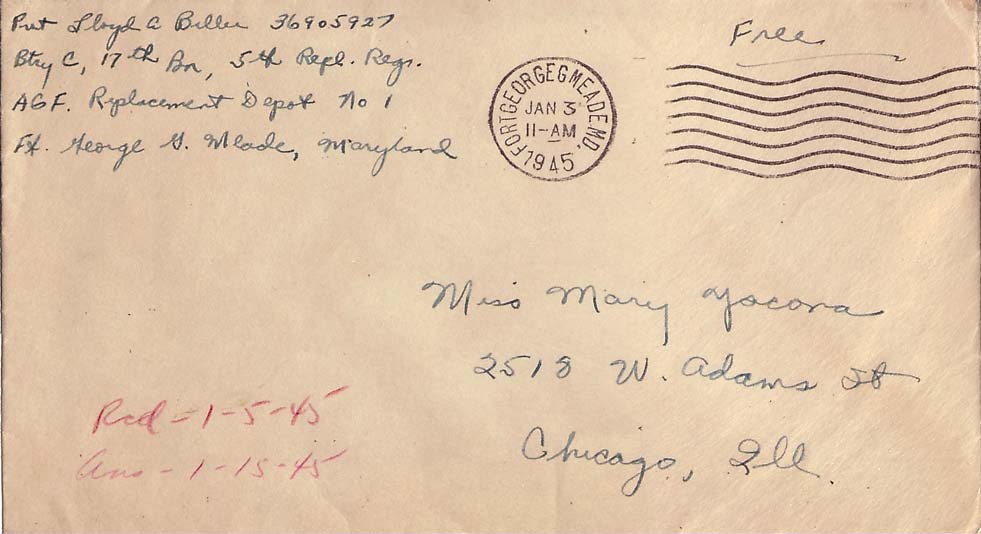 Pvt Lloyd A Biller 36905927
Btry C, 17th Bn, 5th Repl. Regt.
AGF. Replacement Depot No 1
Ft. George G. Meade, Maryland
FORT GEORGE G MEADE MD.
JAN 3
11-AM
1945
Free
Miss Mary Yocona
2518 W. Adams St
Chicago, Ill.
Rcd - 1-5-45
Ans - 1-15-45